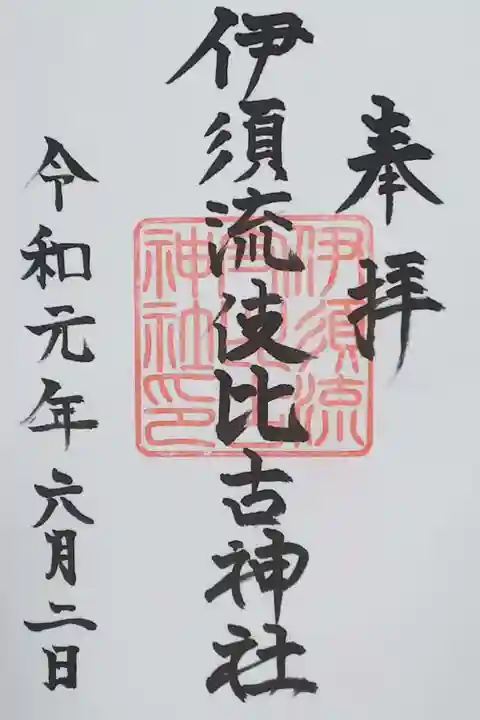 奉拝
伊須流岐比古神社
令和元年六月二日
伊須流
神社印